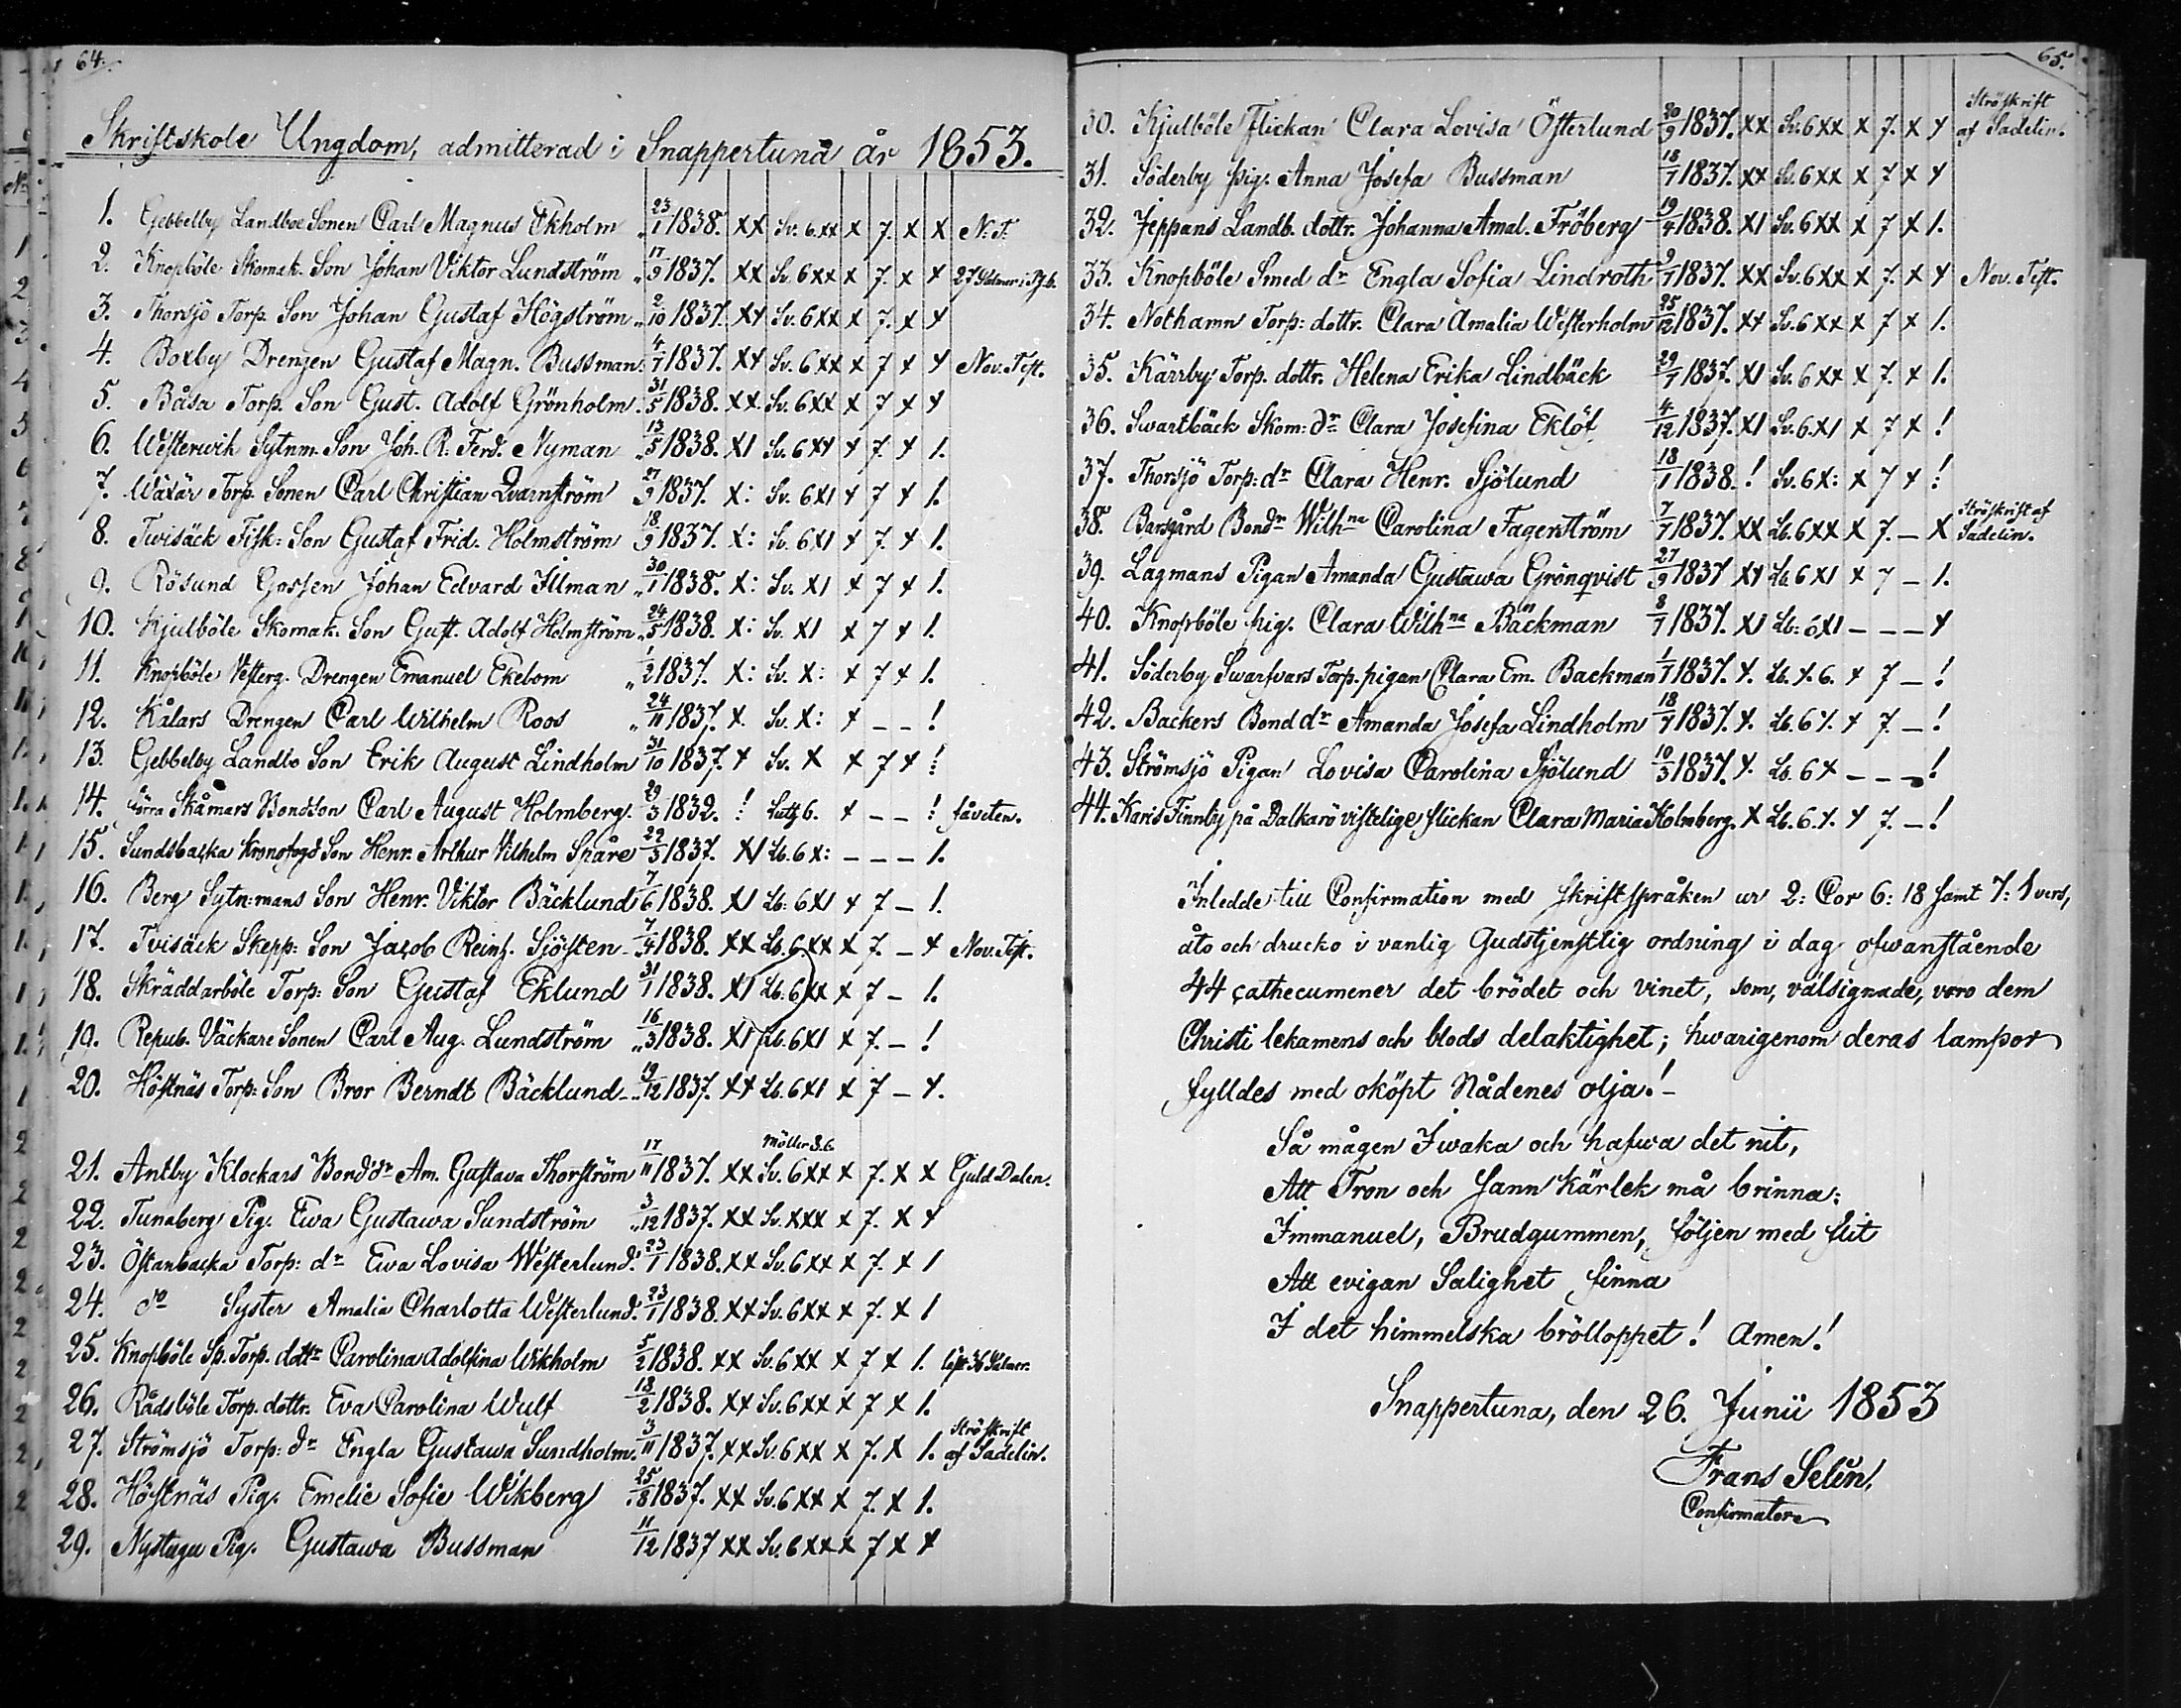 64.
Skriftskole Ungdom, admitterad i Snappertuna år 1853.
1. Gebbelby Landboe Sonen Carl Magnus Ekholm 23/1 1838. XX Sv. 6. xx x 7. x X N. T.
2. Knopböle Skomak. Son Johan Viktor Lundström 17/9 1837. XX Sv. 6 XX x 7. x x
3. Thorsjö Torp. Son Johan Gustaf Högström 2/10 1837. XX Sv. 6 XX x 7. x x
4. Boxby Drengen Gustaf Magn. Bussman 4/7 1837. XX Sv. 6 XX x 7 x x Nov. Test.
5. Båsa Torp. Son Gust. Adolf Grönholm. 31/5 1838. XX. Sv. 6XX x 7 x x
6. Westerwik Sytnm. Son Joh. R. Ferd. Nyman 13/5 1838. XI Sv. 6 XX x 7. x 1.
7. Wäxär Torp. Sonen Carl Christian Qvarnström 27/9 1837. X: Sv. 6XI x 7 x 1.
8. Twisäck Fisk: Son Gustaf Frid. Holmström 18/9 1837. X: Sv. 6XI x 7. x 1.
9. Rösund Gossen Johan Edvard Illman 30/1 1838. X: Sv. XI x 7 x 1.
10. Kjulböle Skomak. Son Gust. Adolf Holmström 24/5 1838. X: Sv. XI x 7 x 1.
11. Knopböle Vesterg. Drengen Emanuel Ekebom 1/2 1837. X: Sv. X: x 7 x 1.
12. Kålars Drengen Carl Wilhelm Roos 24/11 1837. X. Sv. X: x - - !
13. Gebbelby Landbo Son Erik August Lindholm 31/10 1837. x Sv. X x 7 x !
14. Skåmars Bondson Carl August Holmberg. 29/3 1832. ! Lutz 6. x - - ! fåveten.
15. Sundsbacka Kronofogd Son Henr. Arthur Vilhelm Spåre 29/3 1837. XI Lb. 6 X: - - - 1.
16. Berg Sytn:mans Son Henr. Viktor Bäcklund 7/6 1838. XI Lb: 6XI x 7 - 1.
17. Tvisäck Skepp: Son Jacob Reinh. Sjösten 7/4 1838. XX Lb. 6 XX x 7. - x Nov. Test.
18. Skräddarböle Torp: Son Gustaf Eklund 31/1 1838. XI Lb: 6XX x 7 - 1.
19. Repub. Väckare Sonen Carl Aug. Lundström 16/3 1838. XI Lb. 6XI x 7. - !
20. Höstnäs Torp: Son Bror Berndt Bäcklund 19/12 1837. XX Lb. 6XI x 7 - x.
Möller 3.6.
21. Antby Klockars Bond dr Am. Gustava Thorström 17/11 1837. XX Sv. 6XX x 7. X X Guld Dalen.
22. Tunaberg Pig. Ewa Gustawa Sundström 3/12 1837. XX Sv. XXX x 7. X x
23. Östanbacka Torp: dr Ewa Lovisa Westerlund. 23/1 1838. XX Sv. 6XX x 7. x 1
24. do Syster Amalia Charlotta Westerlund. 23/1 1838. XX Sv. 6XX x 7. X 1
25. Knopböle Sp. Torp. dottr Carolina Adolfina Wikholm 5/2 1838. XX Sv. 6 XX x 7 x 1.
26. Rådsböle Torp. dottr. Eva Carolina Wulf 18/2 1838. XX Sv. 6XX x 7 X 1.
27. Strömsjö Torp: dr Engla Gustawa Sundholm. 3/11 1837. XX Sv. 6 XX x 7. X 1. Ströskrift af Sadelin.
28. Höstnäs Pig. Emelie Sofie Wikberg 25/8 1837. XX Sv. 6 XX x 7. X 1.
29. Nystugu Pig. Gustawa Bussman 11/12 1837 XX Sv. 6XX x 7 x x
65.
30. Kjulböle Flickan Clara Lovisa Österlund 20/9 1837. XX Sv: 6XX x 7. x x Ströskrift af Sadelin.
31. Söderby pig. Anna Josefa Bussman 18/7 1837. XX Sv. 6XX x 7 x x
32. Jeppans Landb. dottr. Johanna Amal. Fröberg 19/4 1838. XI Sv. 6XX x 7 x 1.
33. Knopböle Smed dr Engla Sofia Lindroth 9/7 1837. XX Sv. 6XX x 7. x x Nov. Test.
34. Nothamn Torp: dottr. Clara Amalia Westerholm 25/12 1837. XX Sv. 6XX x 7 x 1.
35. Kärrby Torp. dottr. Helena Erika Lindbäck 29/7 1837. XI Sv. 6 XX x 7. x 1.
36. Swartbäck Skom: dr Clara Josefina Eklöf 4/12 1837. XI Sv. 6.XI x 7 x !
37. Thorsjö Torp: dr Clara Henr. Sjölund 18/1 1838. ! Sv. 6 X: x 7 x !
38. Barsgård Bondr Wilhna Carolina Fagerström 7/7 1837. XX Lb. 6XX X 7. - X Ströskrift af Sadelin.
39. Lagmans Pigan Amanda Gustawa Grönqvist 27/9 1837 XX Lb 6 XI x 7 - 1.
40. Knopböle pig. Clara Wilhna Bäckman 8/7 1837. XI Lb: 6XI - - - x
41. Söderby Swarfvars Torp. pigan Clara Em. Backman 1/7 1837. x. Lb. x. 6. x 7 - !
42. Backers Bond dr Amanda Josefa Lindholm 18/7 1837. x. Lb. 6 x. x 7. - !
43. Strömsjö Pigan Lovisa Carolina Sjölund 10/3 1837. x. Lb. 6 x - - - !
44. Karis Finnby på Dalkarö vistelige flickan Clara Maria Holmberg. X Lb. 6. x. x 7. - !
Inledde till Confirmation med skriftspråken ur 2: Cor 6: 18 samt 7: 1 vers,
åto och drucko i vanlig Gudstjenstlig ordning i dag ofwanstående
44 cathecumener det brödet och vinet, som, välsignade, voro dem
Christi lekamens och blods delaktighet; hwarigenom deras lampor
fylldes med oköpt Nådenes olja! -
Så mågen I waka och hafwa det nit,
Att Tron och sann Kärlek må brinna;
Immanuel, Brudgummen, följen med flit
Att evigan Salighet finna
I det himmelska brölloppet! Amen!
Snappertuna, den 26. Junii 1853
Frans Selén,
Confirmator